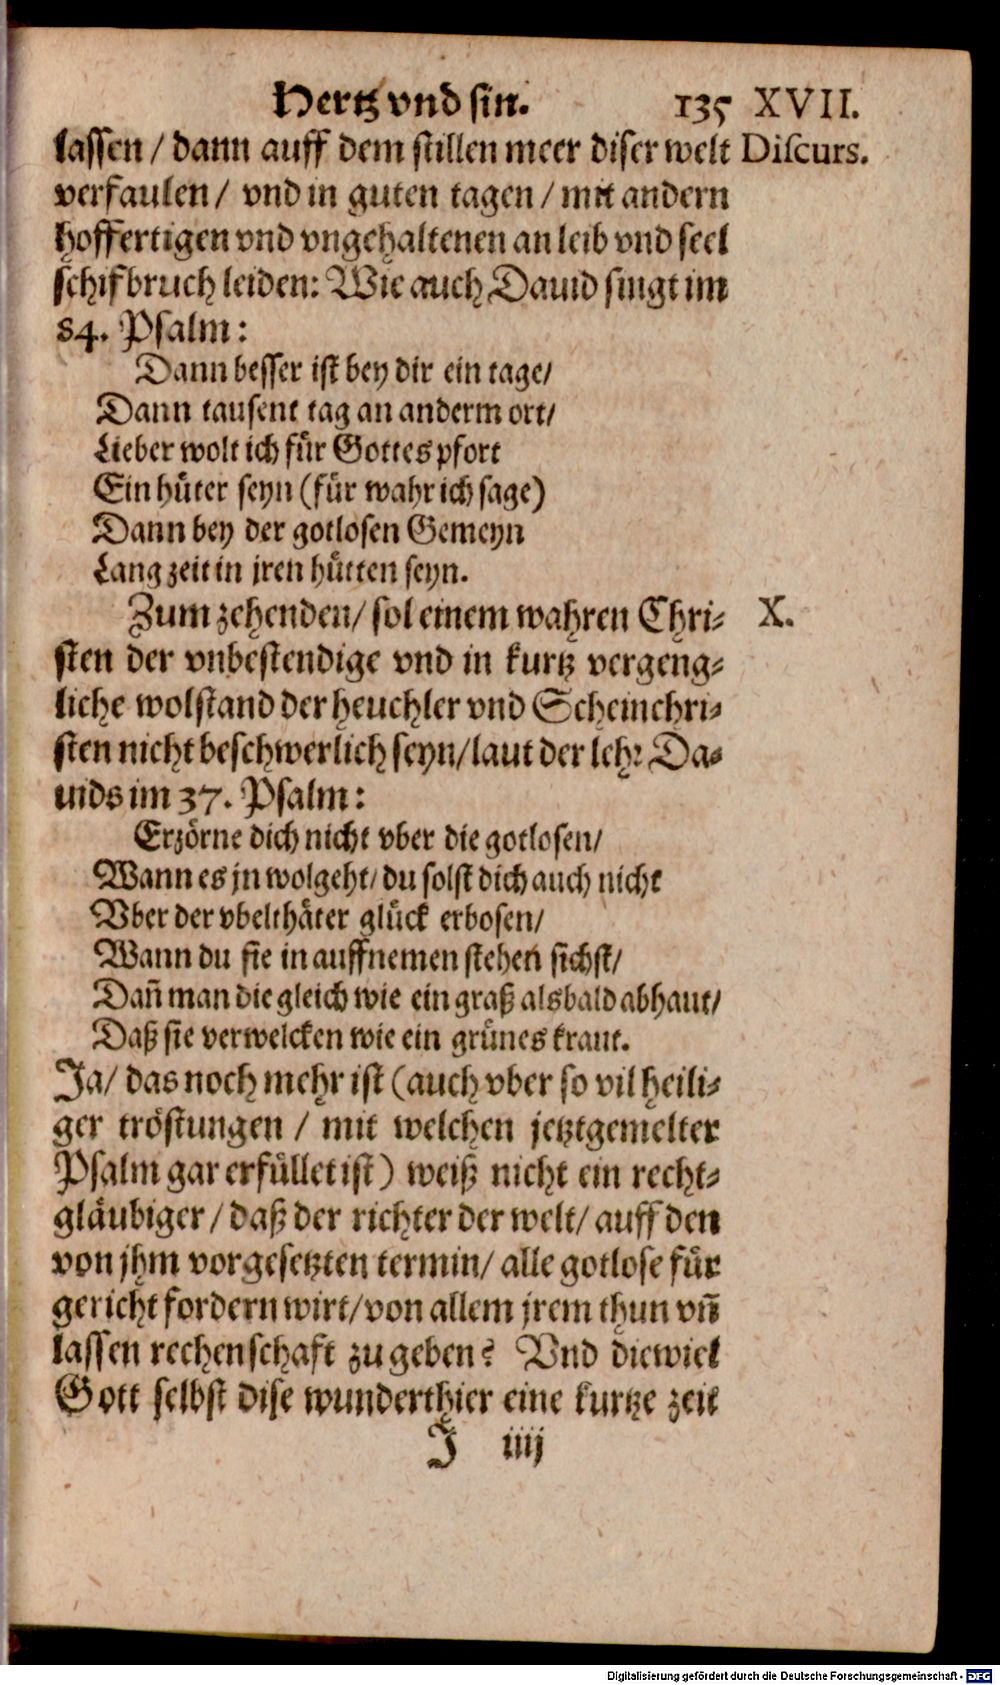 Hertz vnd sin. 135 XVII.
lassen / dann auff dem stillen meer diser welt Discurs.
verfaulen / vnd in guten tagen / mit andern
hoffertigen vnd vngehaltenen an leib vnd seel
schifbruch leiden: Wie auch Dauid singt im
84. Psalm:
Dann besser ist bey dir ein tage/
Dann tausent tag an anderm ort/
Lieber wolt ich für Gottes pfort
Ein hüter seyn (für wahr ich sage)
Dann bey der gotlosen Gemeyn
Lang zeit in jren hütten seyn.
Zum zehenden/ sol einem wahren Chri- X.
sten der vnbestendige vnd in kurtz vergeng-
liche wolstand der heuchler vnd Scheinchri-
sten nicht beschwerlich seyn/laut der lehr Da-
uids im 37. Psalm:
Erzörne dich nicht vber die gotlosen/
Wann es jn wolgeht/ du solst dich auch nicht
Vber der vbelthäter glück erbosen/
Wann du sie in auffnemen stehen sichst/
Dañ man die gleich wie ein graß alsbald abhaut/
Daß sie verwelcken wie ein grünes kraut.
Ja/ das noch mehr ist (auch vber so vil heili-
ger tröstungen / mit welchen jetztgemelter
Psalm gar erfüllet ist) weiß nicht ein recht-
gläubiger / daß der richter der welt/ auff den
von jhm vorgesetzten termin/ alle gotlose für
gericht fordern wirt/von allem jrem thun vñ
lassen rechenschaft zu geben? Vnd diewiel
Gott selbst dise wunderthier eine kurtze zeit
J iiij
Digitalisierung gefördert durch die Deutsche Forschungsgemeinschaft - DFG